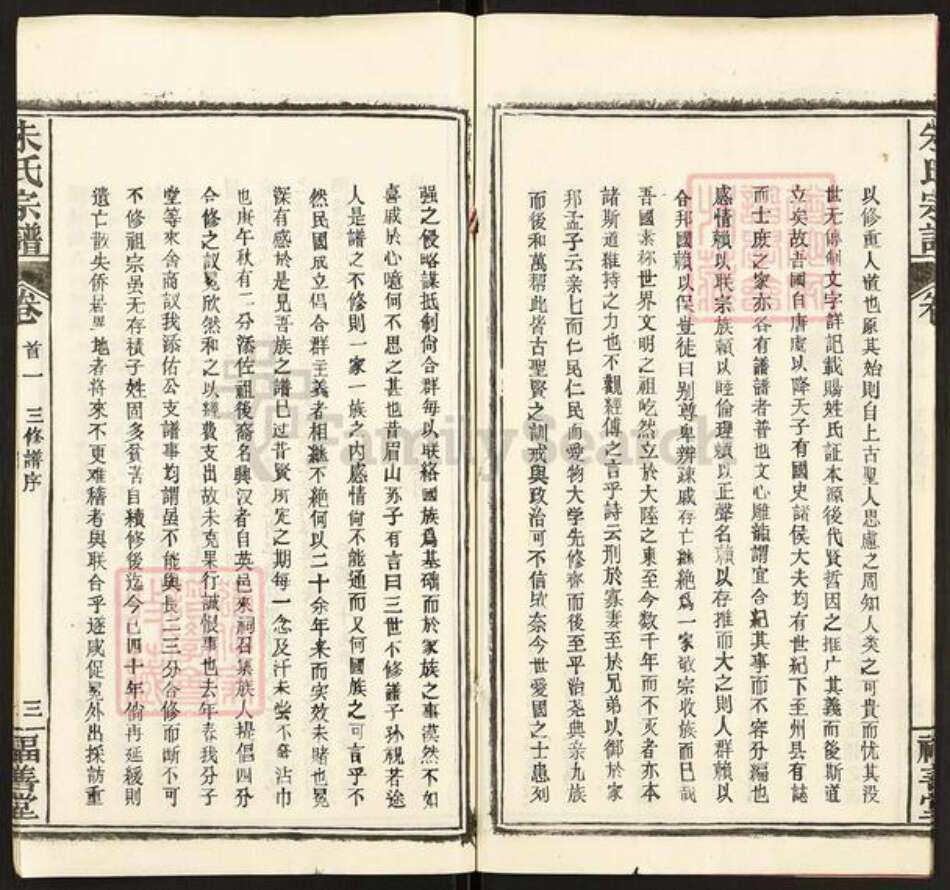 以修重人道也原其始則自上古聖人思慮之周知人类之可貴而忧其没
世无傳制文字詳記載賜姓氏証本源後代賢哲因之推广其義而後斯道
立矣故吾國自唐虞以降天子有國史諸侯大夫均有世紀下至州县有誌
而士庶之家亦各有譜譜者普也文心雕龍謂宜合紀其事而不容分編也
感情賴以联宗族賴以睦倫理賴以正聲名賴以存推而大之則人群賴以
合邦國賴以保豈徒曰别尊卑辨疎戚存亡継絶爲一家敬宗收族而已哉
吾國素称世界文明之祖屹然立於大陸之東至今数千年而不灭者亦本
諸斯道維持之力也不觀經傳之言乎詩云刑於寡妻至於兄弟以御於家
邦孟子云亲七而仁民仁民而愛物大学先修齊而後至平治尧典亲九族
而後和萬邦此皆古聖賢之訓戒與政治可不信欤奈今世愛國之士患列
强之侵略謀抵制尙合群每以联絡國族爲基础而於家族之事漠然不如
喜戚於心噫何不思之甚也昔眉山苏子有言曰三世不修譜子孙視若途
人是譜之不修則一家一族之内感情尙不能通而又何國族之可言乎不
然民國成立倡合群主義者相継不絶何以二十余年来而实效未睹也冕
深有感於是見吾族之譜已过昔賢所定之期每一念及汗未尝不沾巾
也庚午秋有二分添佐祖後裔名興汉者自英邑来祠召集族人提倡四分
合修之议冕欣然和之以經費支出故未克果行誠恨事也去年春我分子
堂等來舍商议我添佑公支譜事均謂虽不能與長二三分合修而斷不可
不修祖宗虽无存積子姓固多貧苦自續修後迄今已四十年倘再延緩則
遺亡散失侨居異地者将來不更难稽者與联合乎逐咸促冕外出採訪重
朱氏宗譜
卷
首一
三修譜序
三
福善堂